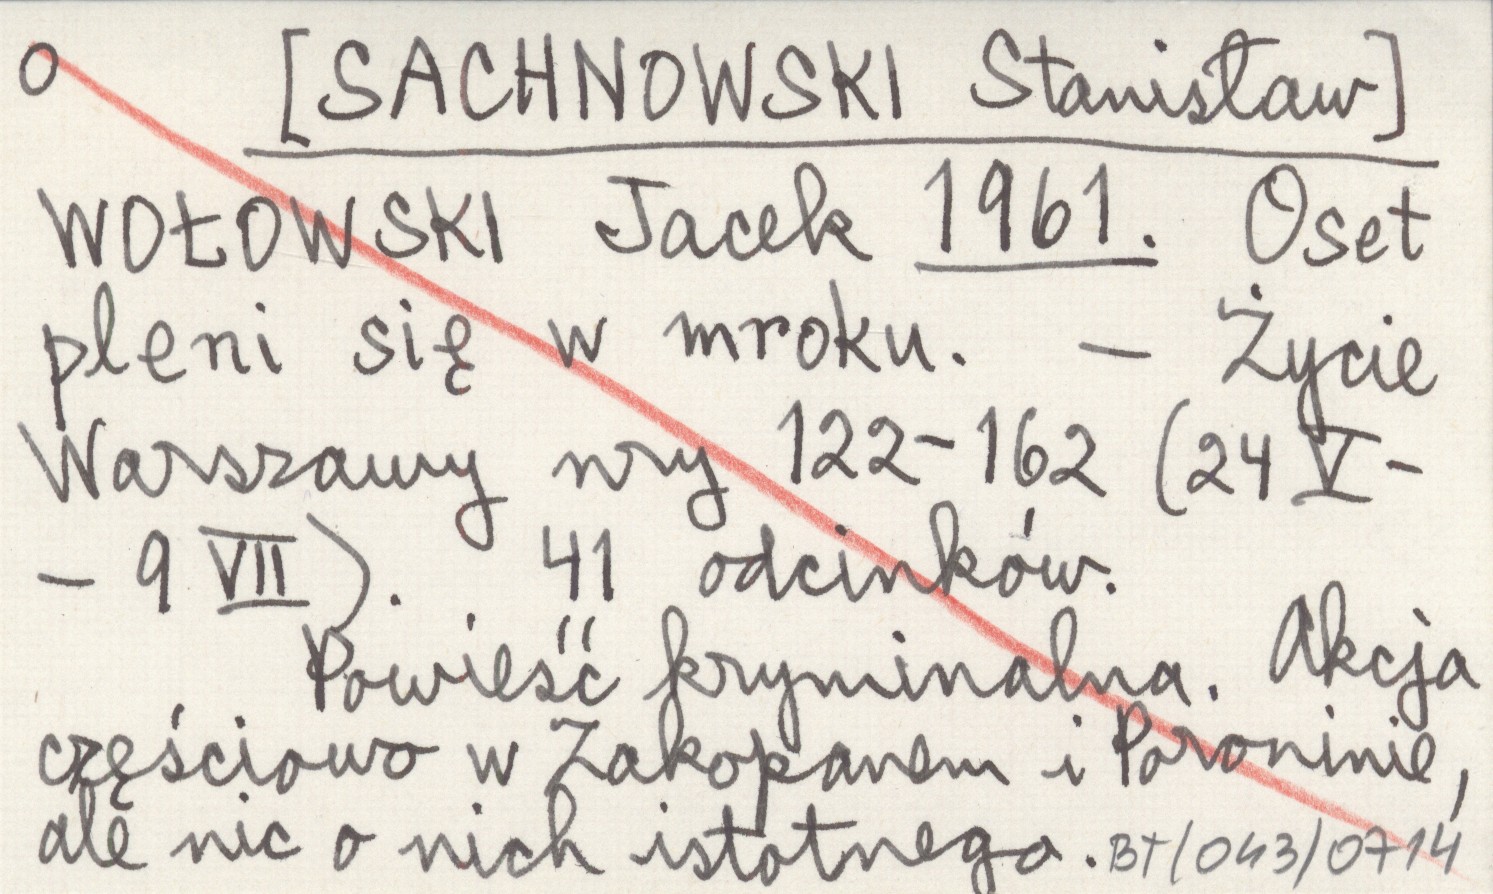 O [SACHNOWSKI Stanisław]
WOŁOWSKI Jacek 1961. Oset
pleni się w mroku. – Życie
Warszawy nry 122-162 (24 V-
– 9 VII). 41 odcinków.
Powieść kryminalna. Akcja
częściowo w Zakopanem i Poroninie,
ale nic o nich istotnego. BT/043/0714